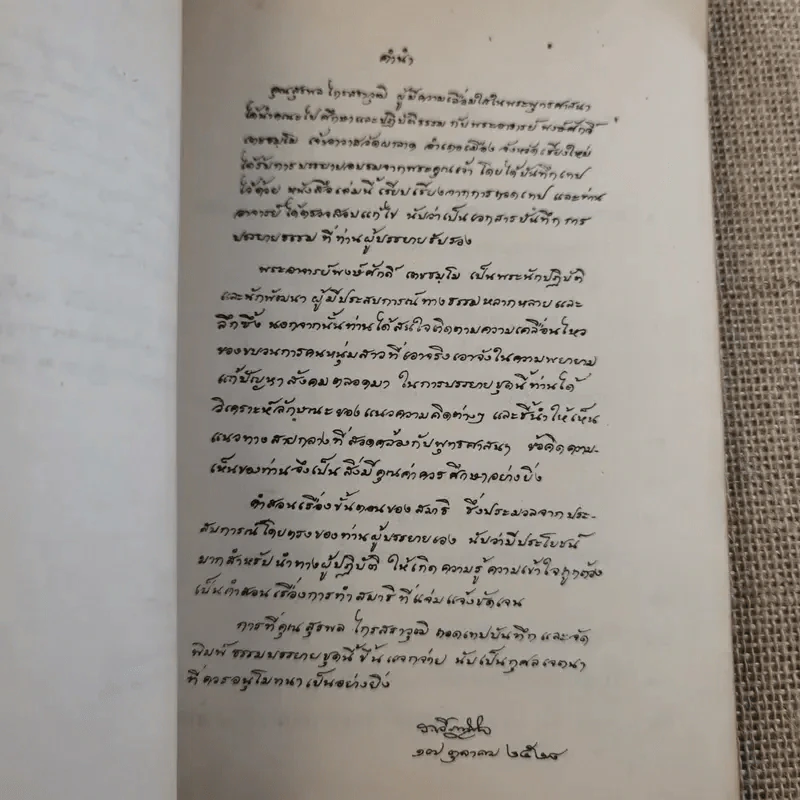 คำนำ
คุณสุรพล ไกรสราวุฒิ ผู้มีความเลื่อมใสในพระพุทธศาสนา
ได้นำคณะไปศึกษาและปฏิบัติธรรม กับพระอาจารย์ พงษ์ศักดิ์
เตชธมฺโม เจ้าอาวาสวัดผาลาด อำเภอเมือง จังหวัดเชียงใหม่
ได้รับการบรรยายอบรมจากพระคุณเจ้า โดยได้บันทึกเทป
ไว้ด้วย หนังสือเล่มนี้ เรียบเรียงจากการถอดเทป และท่าน
อาจารย์ได้ตรวจสอบแก้ไข นับว่าเป็นเอกสารบันทึก การ
บรรยายธรรม ที่ ท่านผู้บรรยายรับรอง
พระอาจารย์พงษ์ศักดิ์ เตชธมฺโม เป็นพระนักปฏิบัติ
และนักพัฒนา ผู้มีประสบการณ์ทางธรรมหลากหลายและ
ลึกซึ้ง นอกจากนั้นท่านได้สนใจติดตามความเคลื่อนไหว
ของขบวนการคนหนุ่มสาวที่เอาจริงเอาจังในความพยายาม
แก้ปัญหาสังคมตลอดมา ในการบรรยายชุดนี้ท่านได้
วิเคราะห์ลักษณะของแนวความคิดต่างๆ และชี้นำให้เห็น
แนวทางสายกลางที่สอดคล้องกับพุทธศาสนา ข้อคิดความ-
เห็นของท่านจึงเป็นสิ่งมีคุณค่าควรศึกษาอย่างยิ่ง
คำสอนเรื่องขั้นตอนของสมาธิ ซึ่งประมวลจากประ-
สบการณ์โดยตรงของท่านผู้บรรยายเอง นับว่ามีประโยชน์
มากสำหรับนำทางผู้ปฏิบัติ ให้เกิดความรู้ความเข้าใจถูกต้อง
เป็นคำสอนเรื่องการทำสมาธิที่แจ่มแจ้งชัดเจน
การที่คุณสุรพล ไกรสราวุฒิ ถอดเทปบันทึก และจัด
พิมพ์ธรรมบรรยายชุดนี้ขึ้นแจกจ่าย นับเป็นกุศลเจตนา
ที่ควรอนุโมทนาเป็นอย่างยิ่ง
๑๗ ตุลาคม ๒๕๒๘